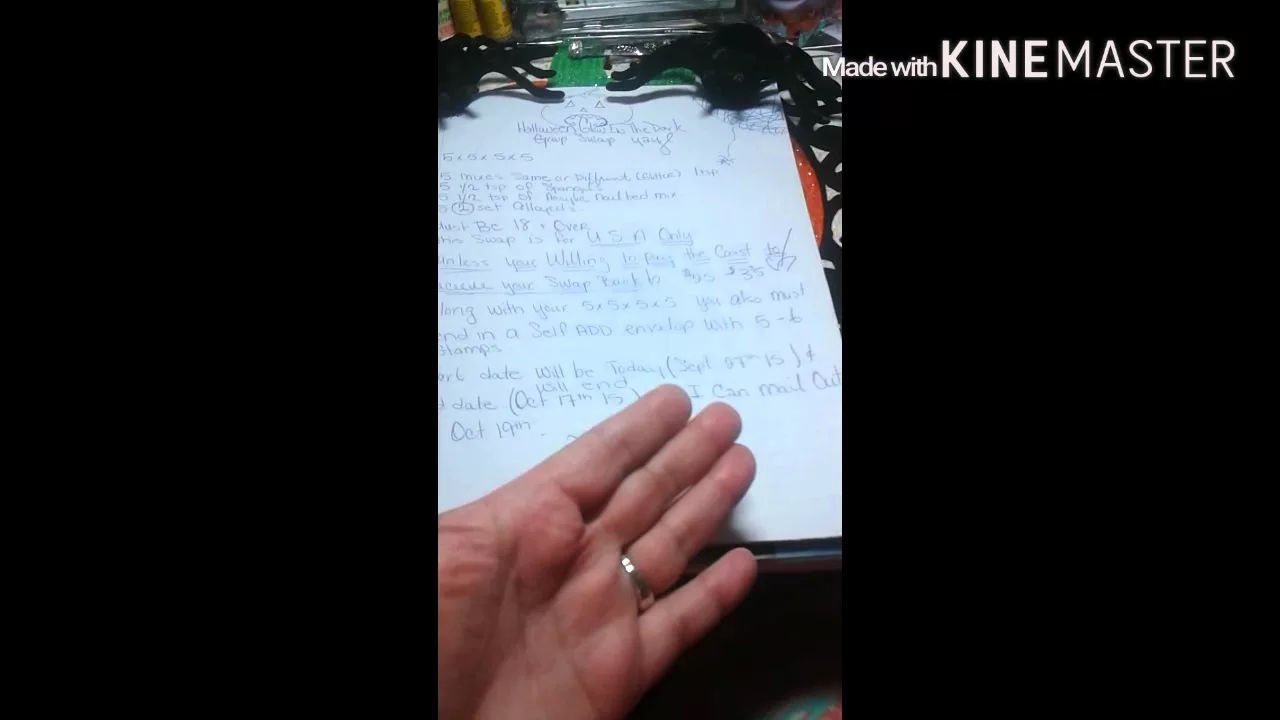 Made with KINEMASTER
Halloween Glow In The Dark
Group Swap
5x5x5x5
5 mixes Same or Different (Glitter) 1 tsp
5 1/2 tsp of Spangles
5 1/2 tsp of Acrylic Nail bed mix
2 set
Must Be 18 & Over
this Swap is for USA Only
unless your Willing to pay the Coast to
your Swap Back $35
long with your 5x5x5x5 you also must
end in a Self ADD envelop with 5-6
Stamps
date will be Today (Sept 27th 15) &
will end
date (Oct 17th 15) I Can mail Out
Oct 19th